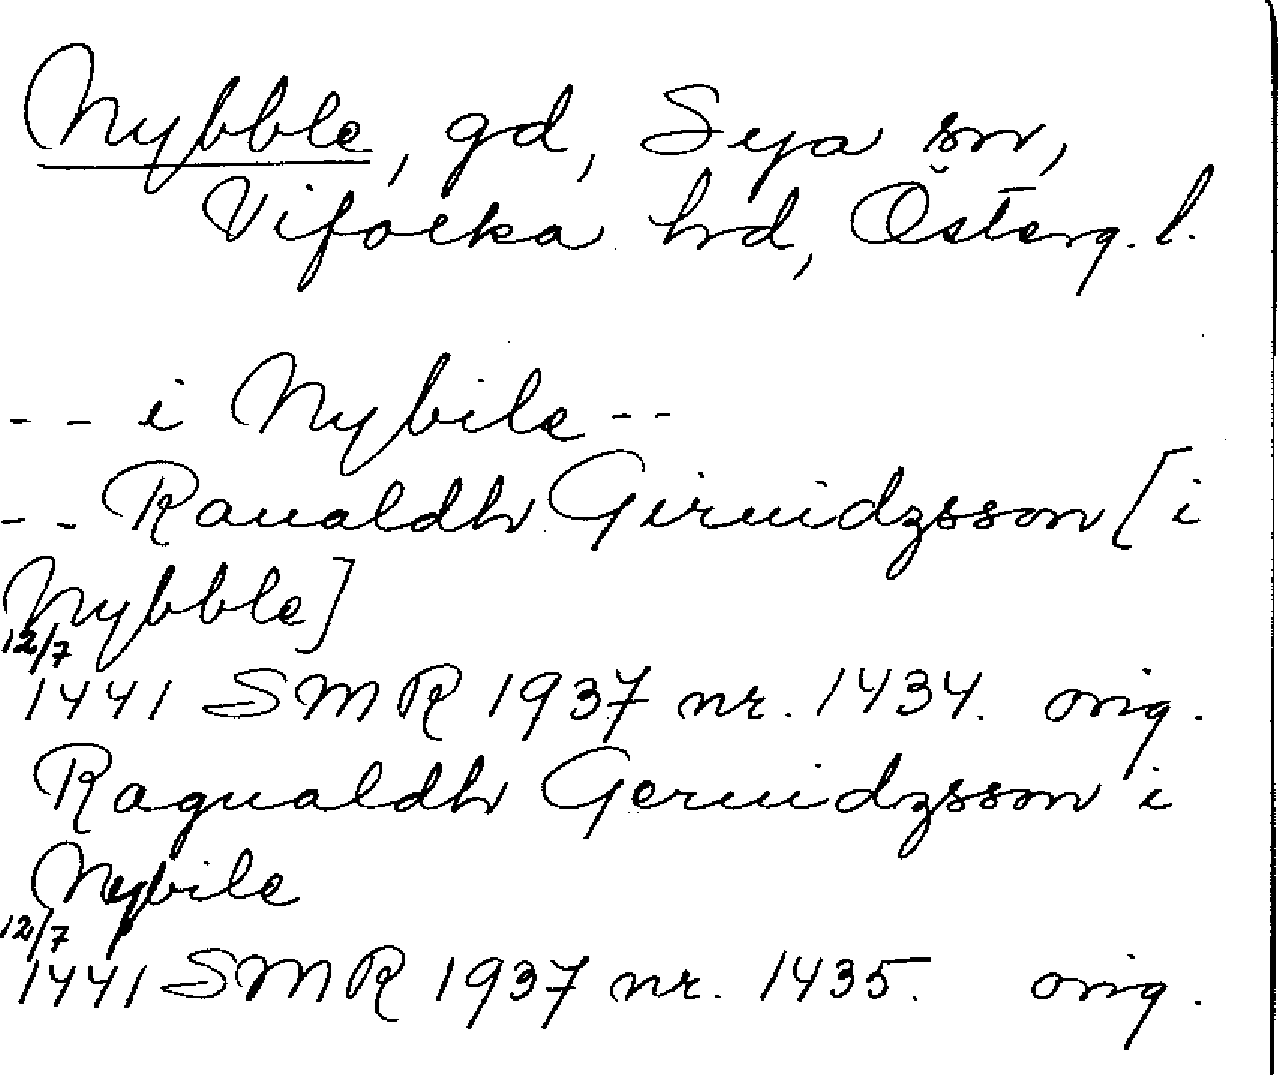 Nybble, gd, Sya sn,
Vifolka hrd, Österg. l.
-- i Nybile --
-- Raualdh Giruidzsson [i
Nybble]
12/7
1441 SMR 1937 nr. 1434. orig.
Ragualdh Geruidzsson i
Nybile
12/7
1441 SMR 1937 nr. 1435. orig.